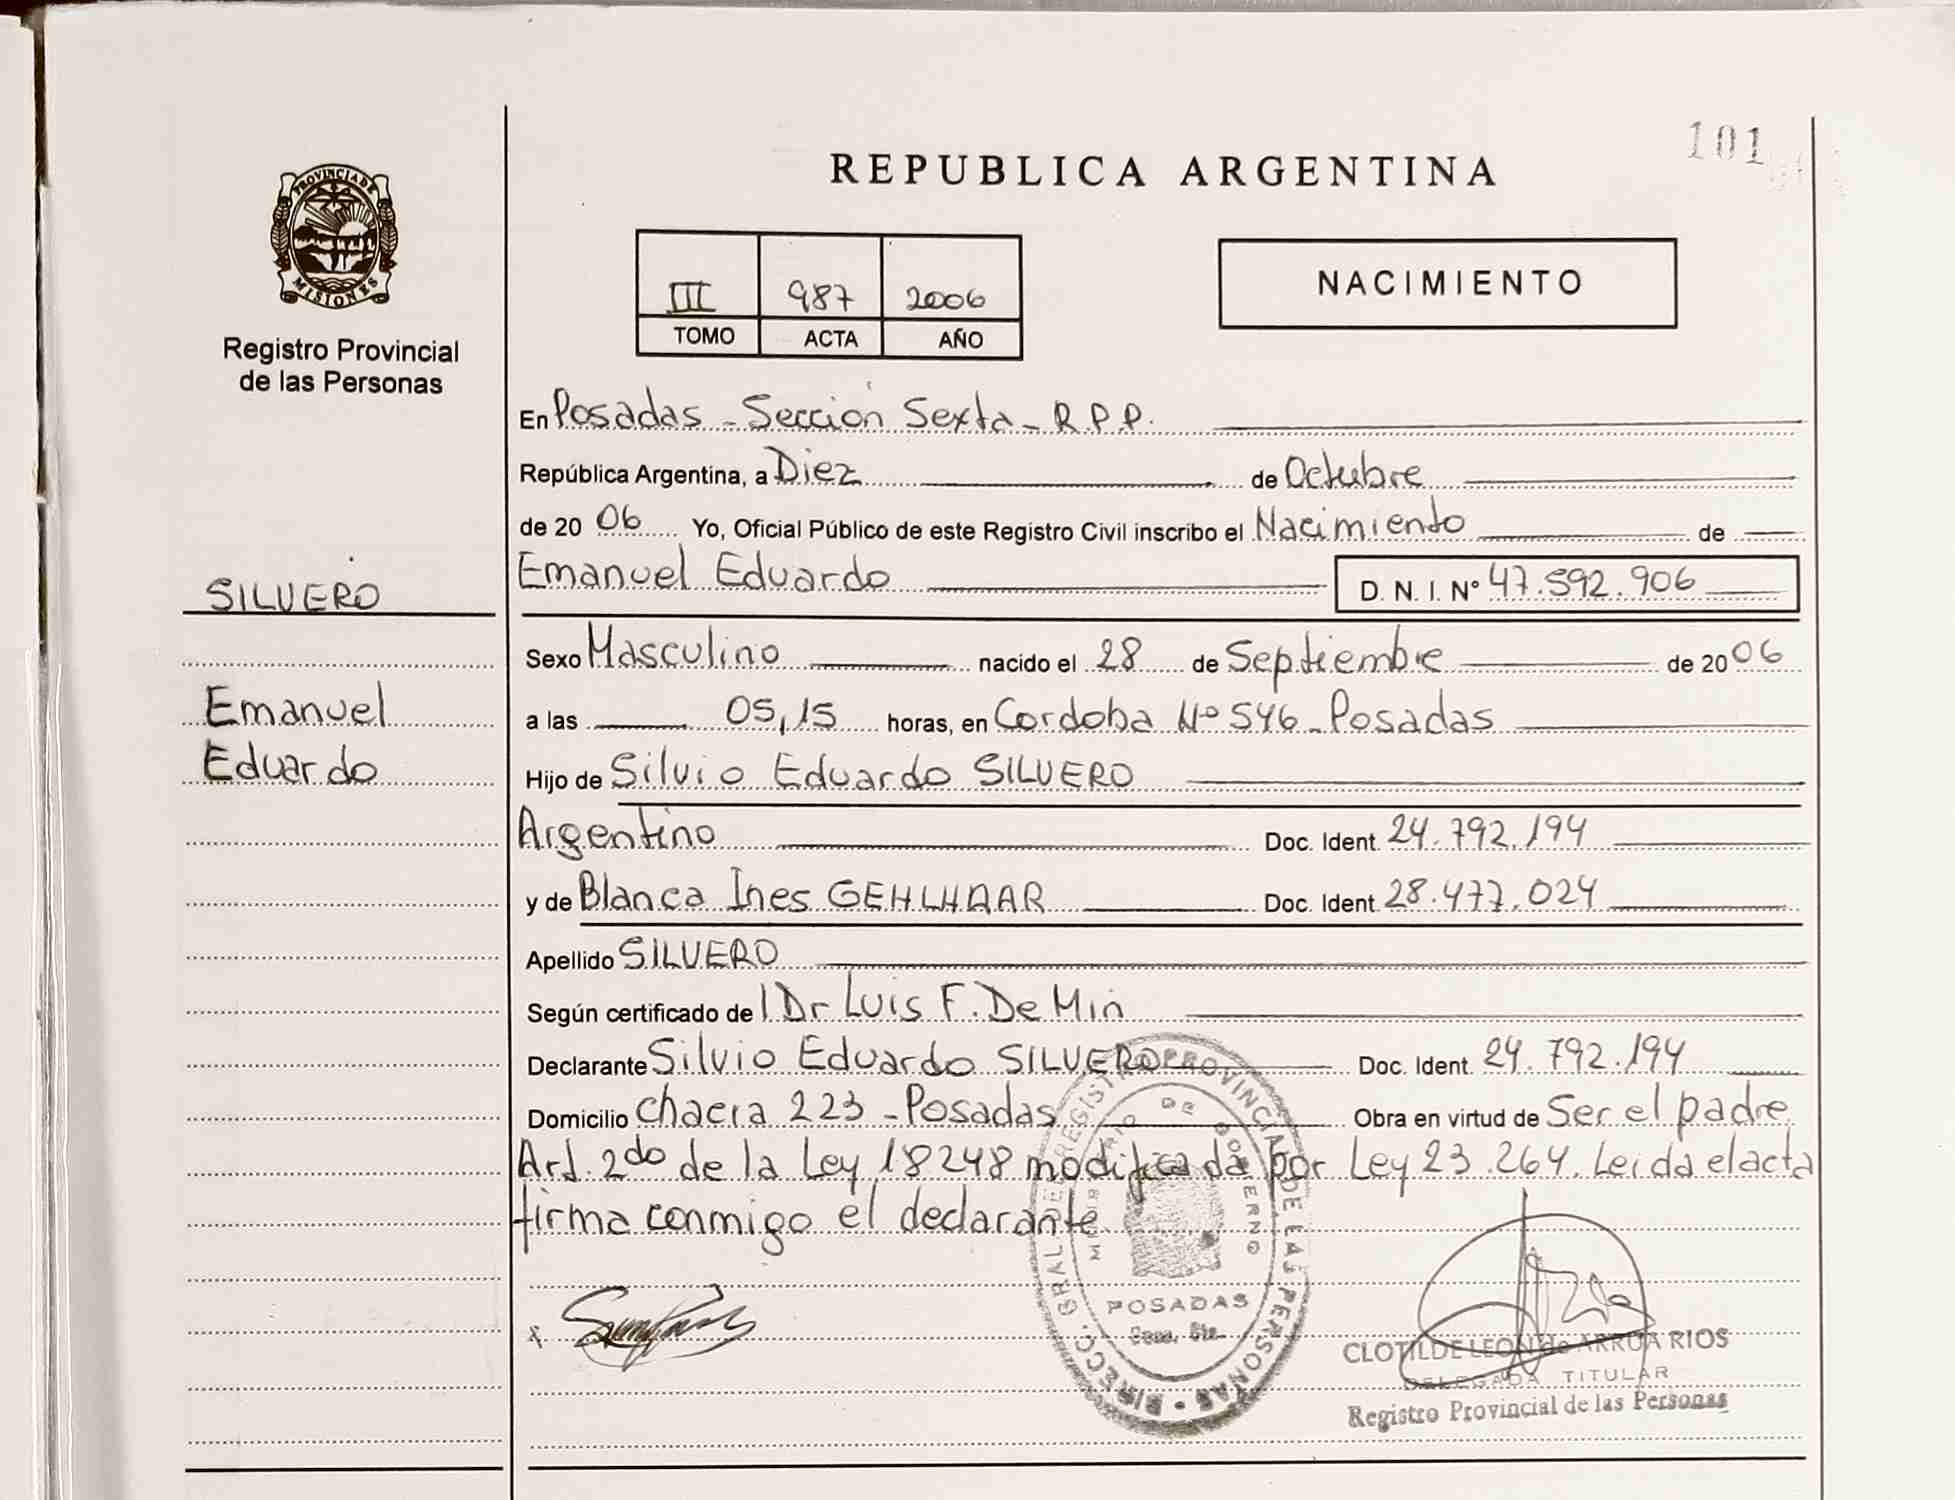 101
REPUBLICA ARGENTINA
PROVINCIA DE
MISIONES
Registro Provincial
de las Personas
III 987 2006
TOMO ACTA AÑO
NACIMIENTO
SILVERO
Emanuel
Eduardo
En Posadas - Sección Sexta - R.P.P.
República Argentina, a Diez de Octubre
de 20 06 Yo, Oficial Público de este Registro Civil inscribo el Nacimiento de
Emanuel Eduardo D. N. I. Nº 47.592.906
Sexo Masculino nacido el 28 de Septiembre de 20 06
a las 05,15 horas, en Cordoba Nº 546 - Posadas
Hijo de Silvio Eduardo SILVERO
Argentino Doc. Ident. 24.792.194
y de Blanca Ines GEHLHAAR Doc. Ident. 28.477.024
Apellido SILVERO
Según certificado de l Dr Luis F. De Min
Declarante Silvio Eduardo SILVERO Doc. Ident. 24.792.194
Domicilio chacra 223 - Posadas Obra en virtud de Ser el padre
Art. 2do de la Ley 18248 modificada por Ley 23.264. Leida el acta
firma conmigo el declarante
DIRECC. GRAL. DE REGISTRO PROVINCIAL DE LAS PERSONAS
MINISTERIO DE GOBIERNO
POSADAS
CLOTILDE LEON de ARRUA RIOS
DELEGADA TITULAR
Registro Provincial de las Personas